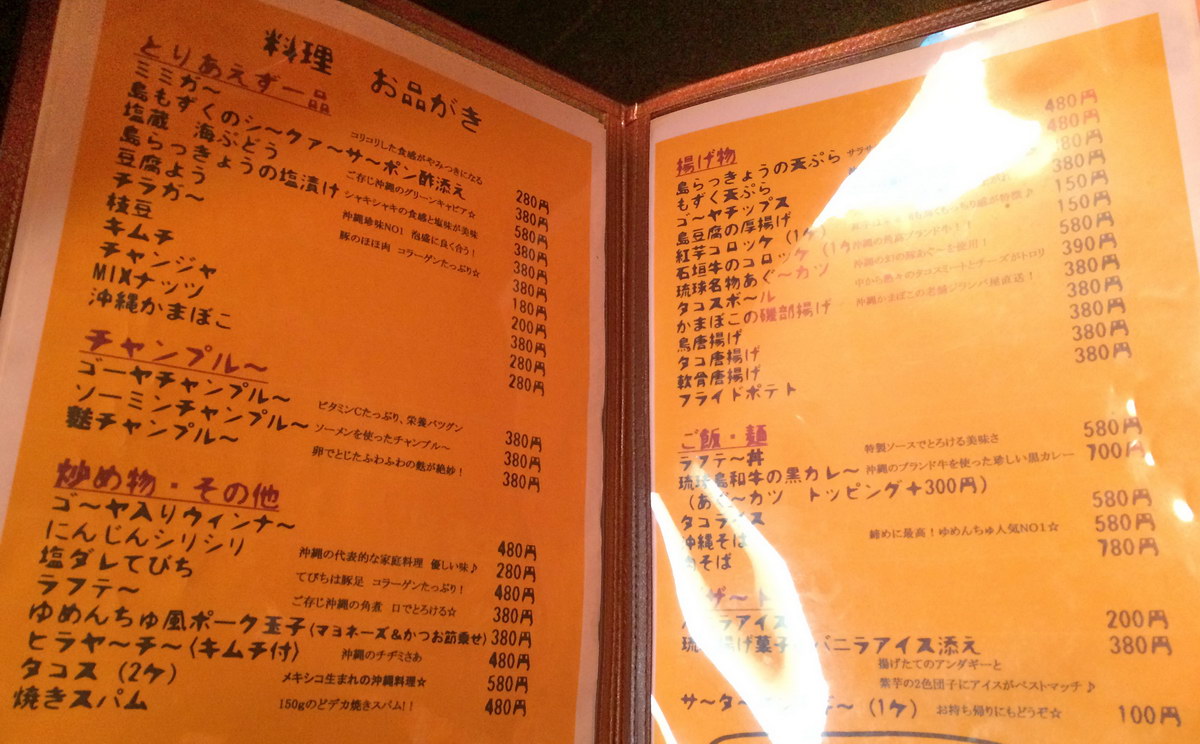 料理 お品がき
とりあえず一品
ミミガ〜 コリコリした食感がやみつきになる 280円
島もずくのシ〜クァ〜サ〜ポン酢添え 380円
塩蔵 海ぶどう ご存じ沖縄のグリーンキャビア☆ 580円
島らっきょうの塩漬け シャキシャキの食感と塩味が美味 380円
豆腐よう 沖縄珍味NO1 泡盛に良く合う! 380円
チラガ〜 豚のほほ肉 コラーゲンたっぷり☆ 380円
枝豆 180円
キムチ 200円
チャンジャ 380円
MIXナッツ 280円
沖縄かまぼこ 280円
チャンプル〜
ゴーヤチャンプル〜 ビタミンCたっぷり、栄養バツグン 380円
ソーミンチャンプル〜 ソーメンを使ったチャンプル〜 380円
麩チャンプル〜 卵でとじたふわふわの麩が絶妙! 380円
炒め物・その他
ゴ〜ヤ入りウィンナ〜 480円
にんじんシリシリ 沖縄の代表的な家庭料理 優しい味♪ 280円
塩ダレてびち てびちは豚足 コラーゲンたっぷり! 480円
ラフテ〜 ご存じ沖縄の角煮 口でとろける☆ 380円
ゆめんちゅ風ポーク玉子(マヨネーズ&かつお節乗せ) 380円
ヒラヤ〜チ〜(キムチ付) 沖縄のチヂミさぁ 480円
タコス(2ケ) メキシコ生まれの沖縄料理☆ 580円
焼きスパム 150gのどデカ焼きスパム!! 480円
揚げ物
島らっきょうの天ぷら 480円
もずく天ぷら 480円
ゴ〜ヤチップス
島豆腐の厚揚げ 380円
紅芋コロッケ(1ケ) 150円
石垣牛のコロッケ(1ケ 沖縄の最高ブランド牛!! 150円
琉球名物あぐ〜カツ 沖縄の幻の豚あぐ〜を使用! 580円
タコスボ〜ル 中から熱々のタコスミートとチーズがトロリ 390円
かまぼこの磯部揚げ 沖縄かまぼこの老舗ジランバ屋直送! 380円
鳥唐揚げ 380円
タコ唐揚げ 380円
軟骨唐揚げ 380円
フライドポテト 380円
ご飯・麺
ラフテ〜丼 特製ソースでとろける美味さ 580円
琉球島和牛の黒カレ〜 沖縄のブランド牛を使った珍しい黒カレー 700円
(あぐ〜カツ トッピング+300円)
タコライス 580円
沖縄そば 締めに最高!ゆめんちゅ人気NO1☆ 580円
そば 780円
ザ〜ト
ラアイス 200円
琉 揚げ菓子 バニラアイス添え 380円
揚げたてのアンダギーと
紫芋の2色団子にアイスがベストマッチ♪
サ〜タ〜 〜(1ケ) お持ち帰りにもどうぞ☆ 100円